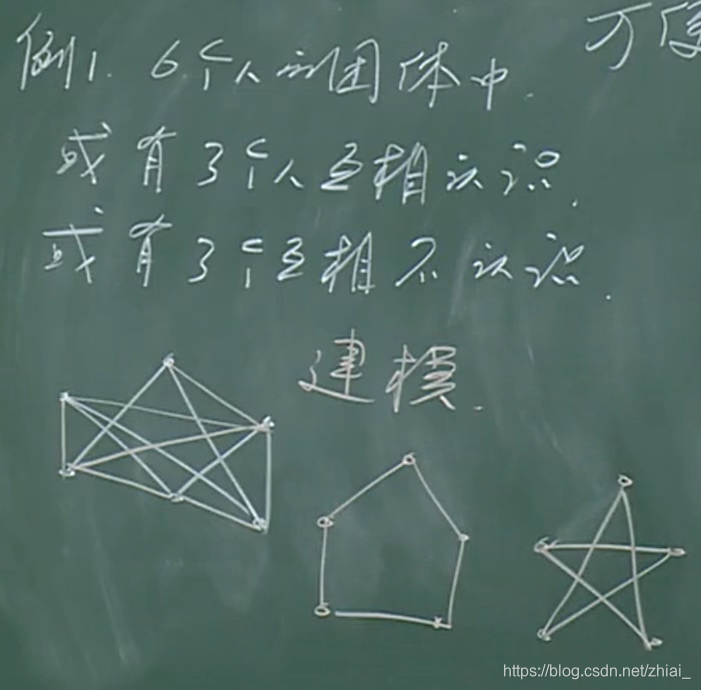 例1. 6个人的团体中.
方便
或有3个人互相认识.
或有3个互相不认识.
建模.
https://blog.csdn.net/zhiai_